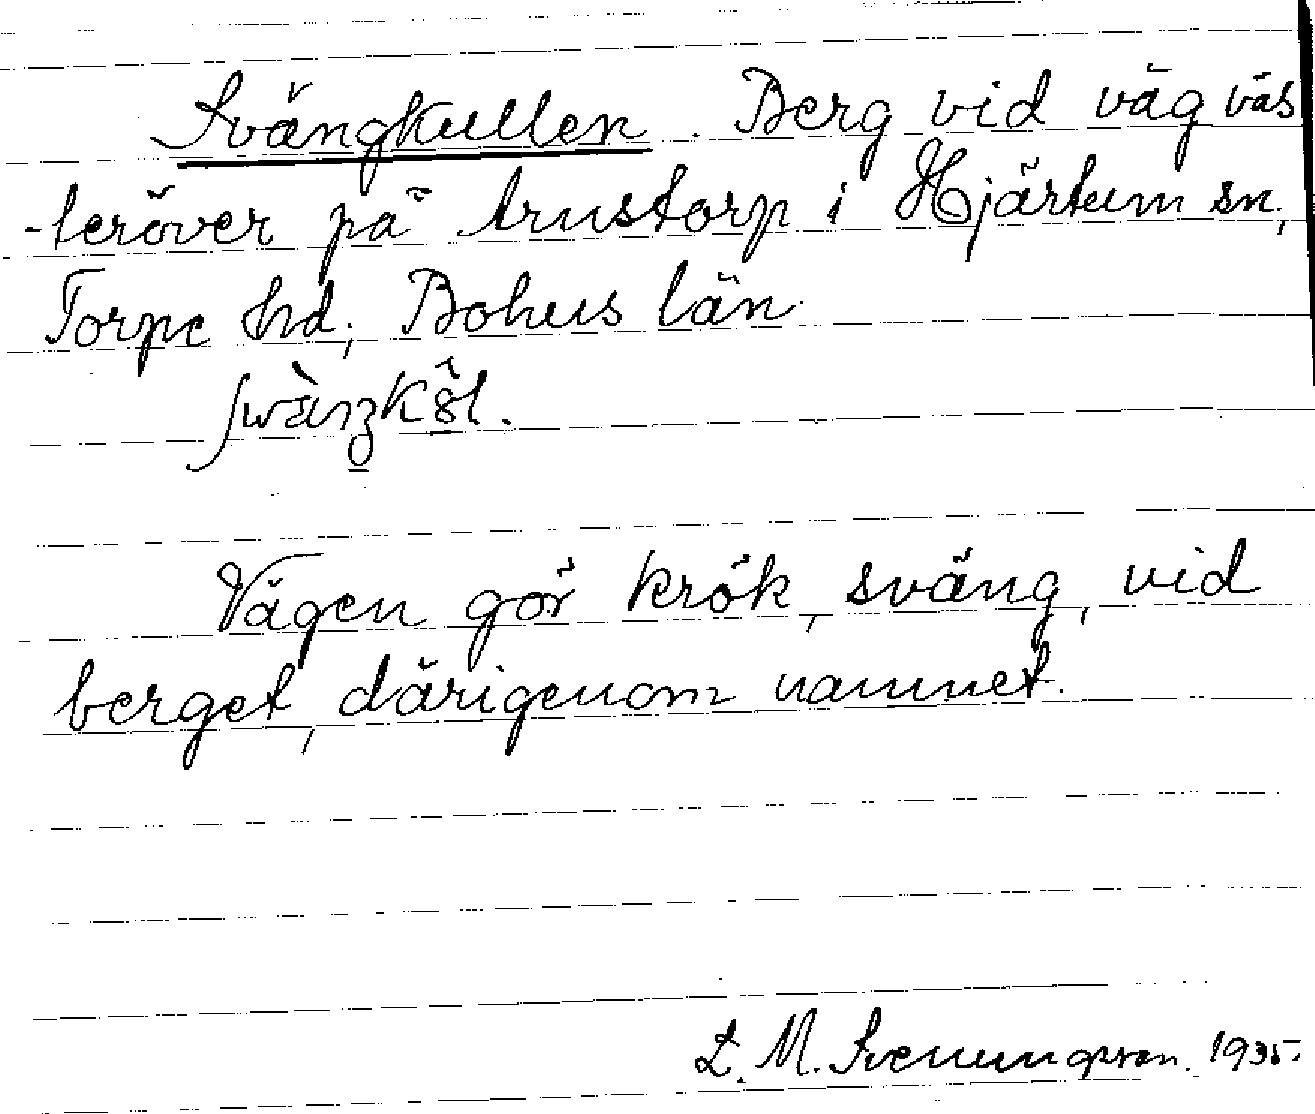 Svängkullen. Berg vid väg väs
-teröver på Arnstorp i Hjärtum sn,
Torpe hd, Bohus län.
Vägen gör krök, sväng, vid
berget, därigenom namnet.
L. M. Svenungsson. 1935.